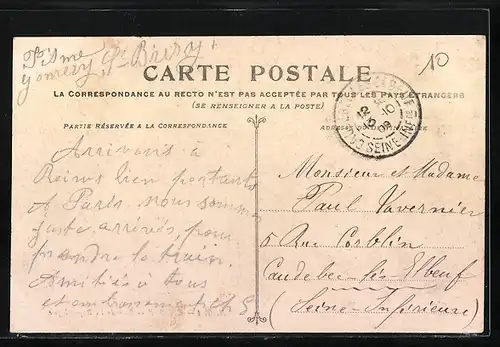 10
CARTE POSTALE
LA CORRESPONDANCE AU RECTO N'EST PAS ACCEPTÉE PAR TOUS LES PAYS ÉTRANGERS
(SE RENSEIGNER A LA POSTE)
PARTIE RÉSERVÉE A LA CORRESPONDANCE
Arrivons à
Reims bien portants
A Paris. nous sommes
juste arrivés pour
prendre le train.
Amitiés à tous
et embrassements
12
5-10
09
SEINE-INF
Monsieur et Madame
Paul Tavernier
5 Rue Corblin
Caudebec-lès-Elbeuf
(Seine-Inférieure)